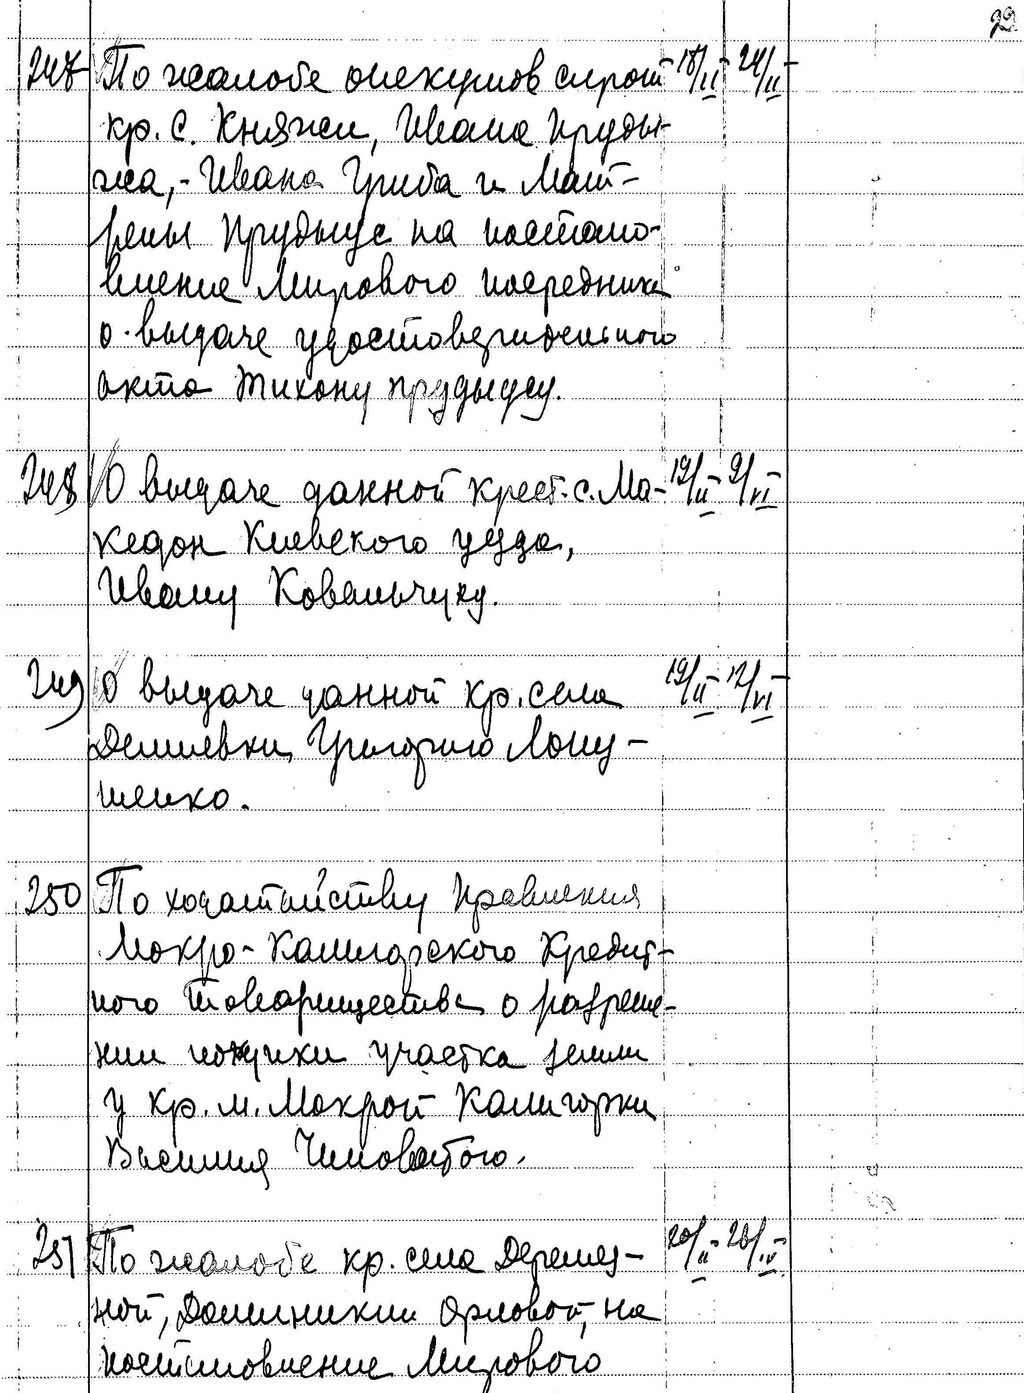 92
247 По жалобе опекунов сирот 18/II - 24/II -
кр. с. Княжи, Ивана Пруды-
уса, - Ивана Гриба и Мат-
рены Прудыус на постано-
вление Мирового посредника
о выдаче удостоверительного
акта Тихону Прудыусу.
248 О выдаче данной крест. с. Ма- 19/II - 9/VI -
кедон Киевского уезда,
Ивану Ковальчуку.
249 О выдаче данной кр. села 19/II - 12/VI -
Демиевки, Григорию Лопу-
шенко.
250 По ходатайству Правления
Мокро-Калигорского Кредит-
ного Товарищества о разреше-
нии покупки участка земли
у кр. м. Мокрой Калигорки
Василия Чиповатого.
251 По жалобе кр. села Деренез-
ной, Домникии Орловой, на
постановление Мирового